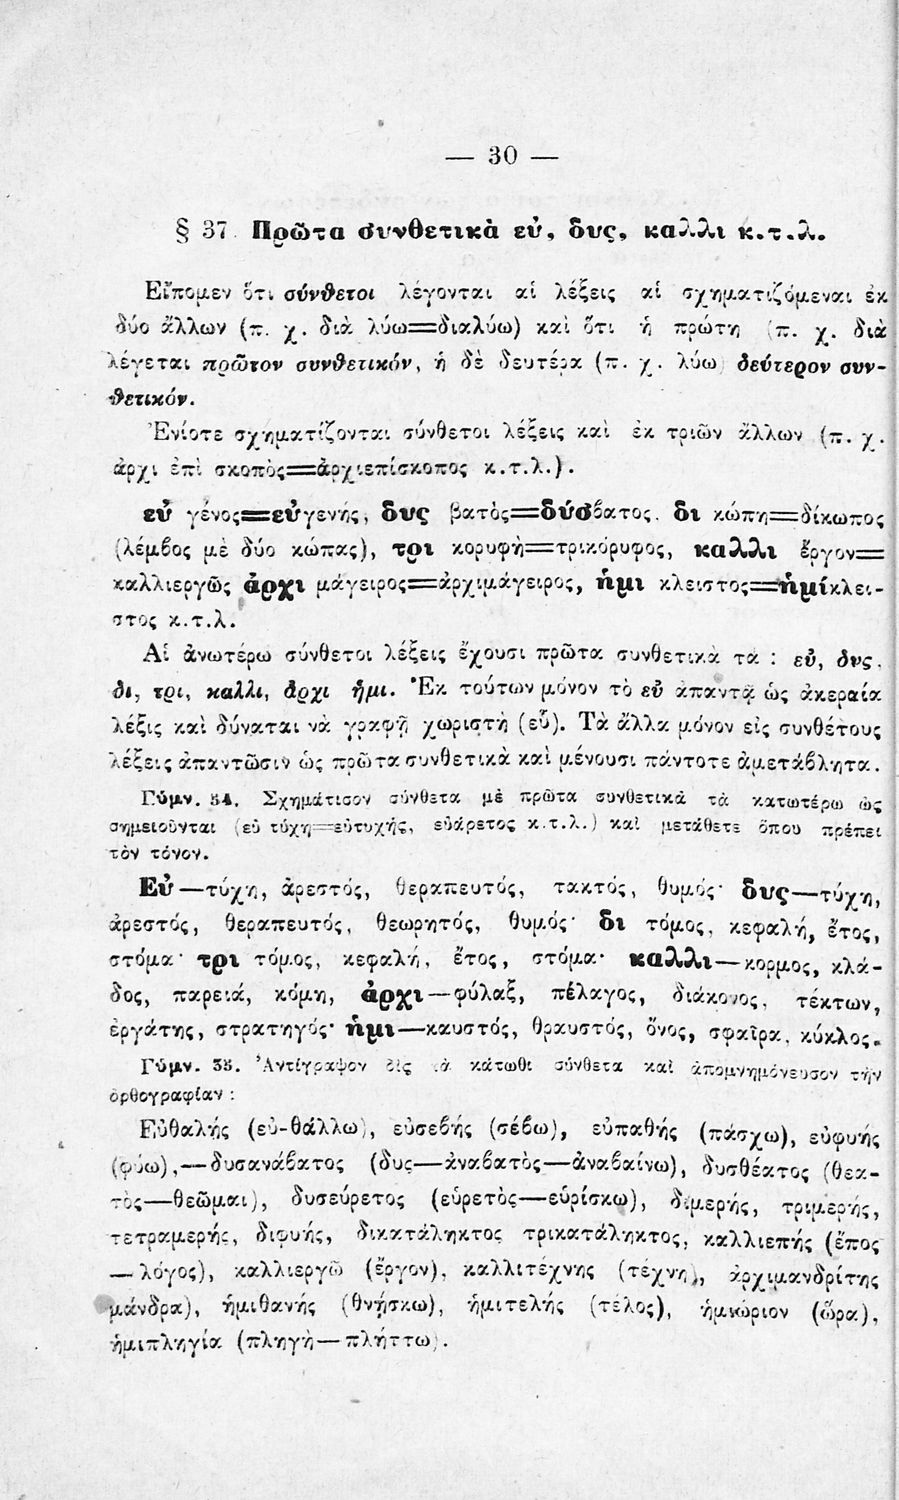 — 30 —
§ 37. Πρῶτα συνθετικὰ εὐ, δυς, καλλι κ.τ.λ.
Εἴπομεν ὅτι σύνθετοι λέγονται αἱ λέξεις αἱ σχηματιζόμεναι ἐκ
δύο ἄλλων (π. χ. διὰ λύω=διαλύω) καὶ ὅτι ἡ πρώτη (π. χ. διὰ
λέγεται πρῶτον συνθετικόν, ἡ δὲ δευτέρα (π. χ. λύω) δεύτερον συν-
θετικόν.
Ἐνίοτε σχηματίζονται σύνθετοι λέξεις καὶ ἐκ τριῶν ἄλλων (π. χ.
ἀρχι ἐπὶ σκοπὸς=ἀρχιεπίσκοπος κ.τ.λ.).
εὐ γένος=εὐγενής, δυς βατὸς=δύσβατος. δι κώπη=δίκωπος
(λέμβος μὲ δύο κώπας), τρι κορυφὴ=τρικόρυφος, καλλι ἔργον=
καλλιεργῶς ἀρχι μάγειρος=ἀρχιμάγειρος, ἡμι κλειστος=ἡμίκλει-
στος κ.τ.λ.
Αἱ ἀνωτέρω σύνθετοι λέξεις ἔχουσι πρῶτα συνθετικὰ τὰ : εὐ, δυς,
δι, τρι, καλλι, ἀρχι ἡμι. Ἐκ τούτων μόνον τὸ εὐ ἀπαντᾷ ὡς ἀκεραία
λέξις καὶ δύναται νὰ γραφῇ χωριστὴ (εὖ). Τὰ ἄλλα μόνον εἰς συνθέτους
λέξεις ἀπαντῶσιν ὡς πρῶτα συνθετικὰ καὶ μένουσι πάντοτε ἀμετάβλητα.
Γύμν. 54. Σχημάτισον σύνθετα μὲ πρῶτα συνθετικὰ τὰ κατωτέρω ὡς
σημειοῦνται (εὐ τύχη=εὐτυχής, εὐάρετος κ.τ.λ.) καὶ μετάθετε ὅπου πρέπει
τὸν τόνον.
Εὐ—τύχη, ἀρεστός, θεραπευτός, τακτός, θυμός· δυς—τύχη,
ἀρεστός, θεραπευτός, θεωρητός, θυμός· δι τόμος, κεφαλή, ἔτος,
στόμα· τρι τόμος, κεφαλή, ἔτος, στόμα· καλλι—κορμος, κλά-
δος, παρειά, κόμη, ἀρχι—φύλαξ, πέλαγος, διάκονος, τέκτων,
ἐργάτης, στρατηγός· ἡμι—καυστός, θραυστός, ὄνος, σφαῖρα, κύκλος.
Γύμν. 55. Ἀντίγραψον δὶς τὰ κάτωθι σύνθετα καὶ ἀπομνημόνευσον τὴν
ὀρθογραφίαν :
Εὐθαλής (εὐ-θάλλω), εὐσεβής (σέβω), εὐπαθής (πάσχω), εὐφυής
(φύω),—δυσανάβατος (δυς—ἀναβατὸς—ἀναβαίνω), δυσθέατος (θεα-
τὸς—θεῶμαι), δυσεύρετος (εὑρετὸς—εὑρίσκω), διμερής, τριμερής,
τετραμερής, διφυής, δικατάληκτος τρικατάληκτος, καλλιεπής (ἔπος
—λόγος), καλλιεργῶ (ἔργον), καλλιτέχνης (τέχνη), ἀρχιμανδρίτης
μάνδρα), ἡμιθανής (θνήσκω), ἡμιτελής (τέλος), ἡμιώριον (ὥρα),
ἡμιπληγία (πληγὴ—πλήττω).